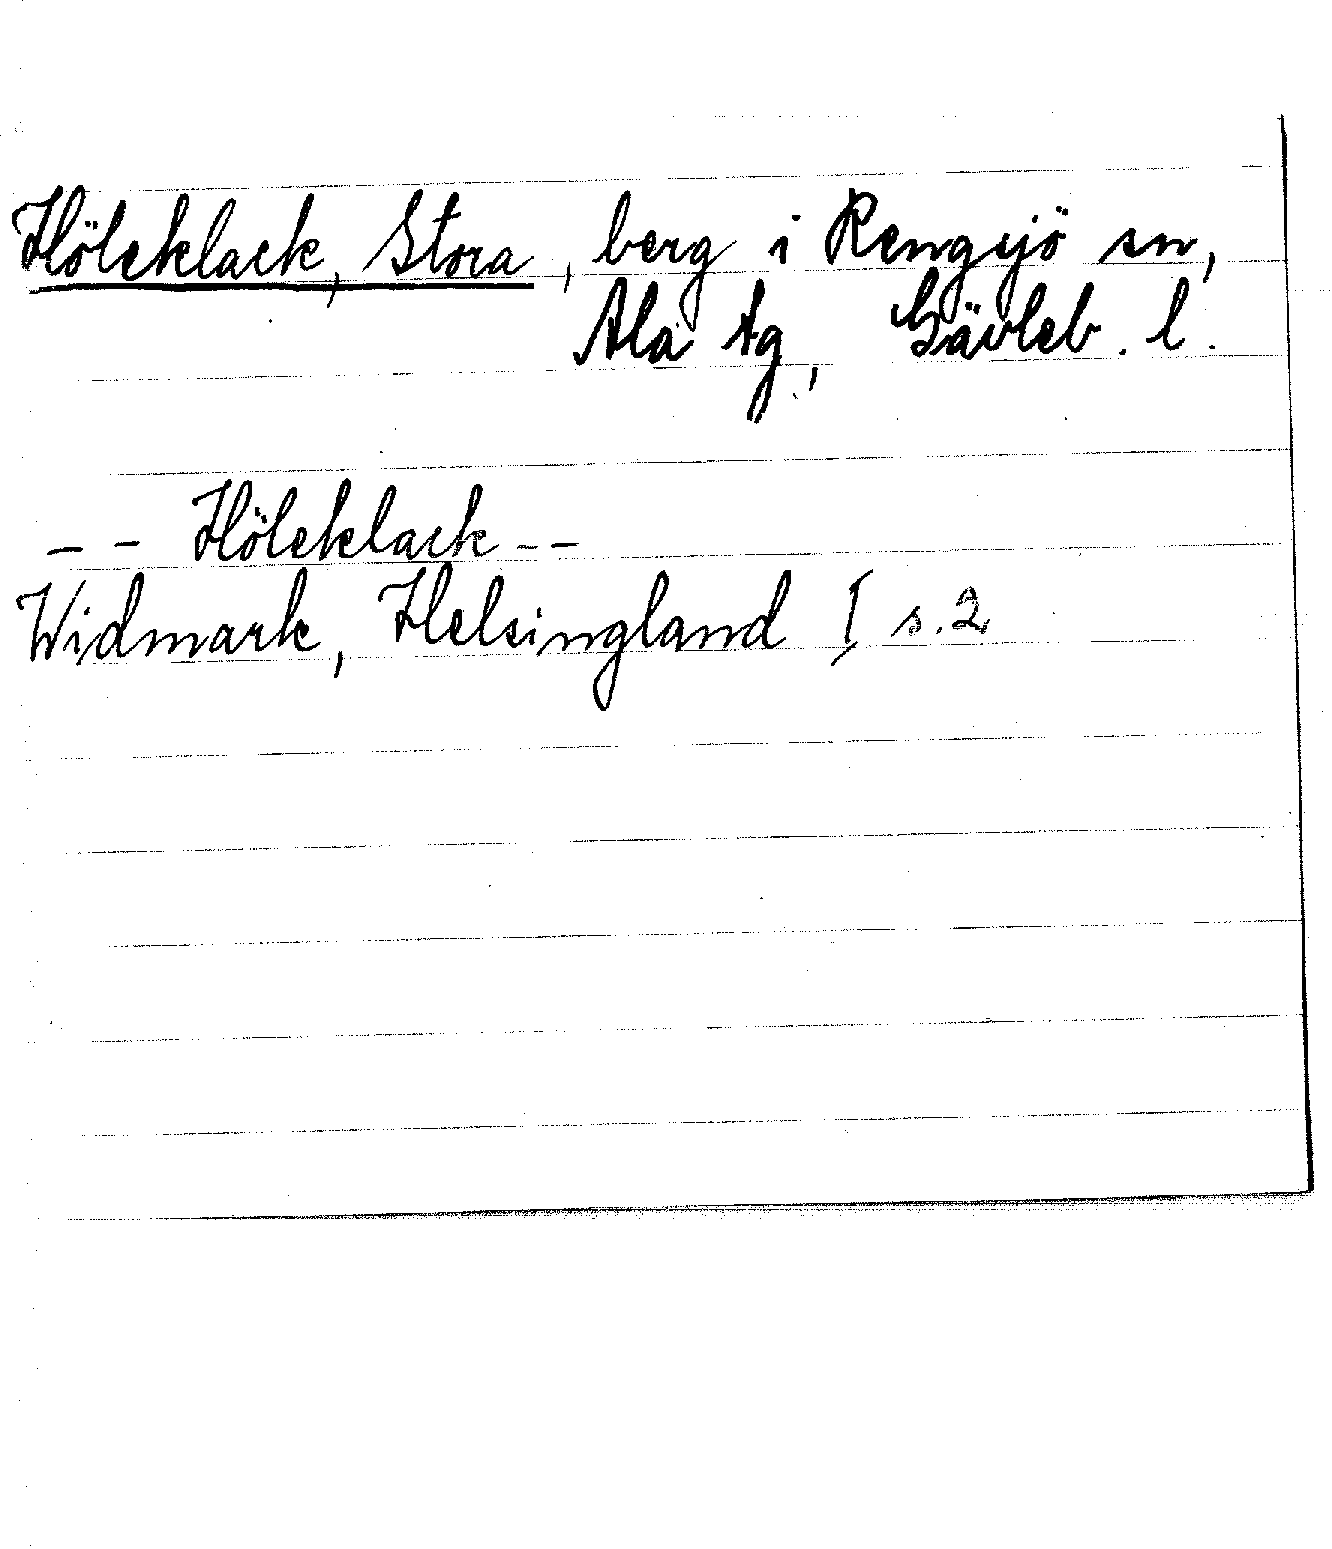 Höleklack, Stora, berg i Rengsjö sn,
Ala tg, Gävleb. l.
-- Höleklack --
Widmark, Helsingland I s. 2